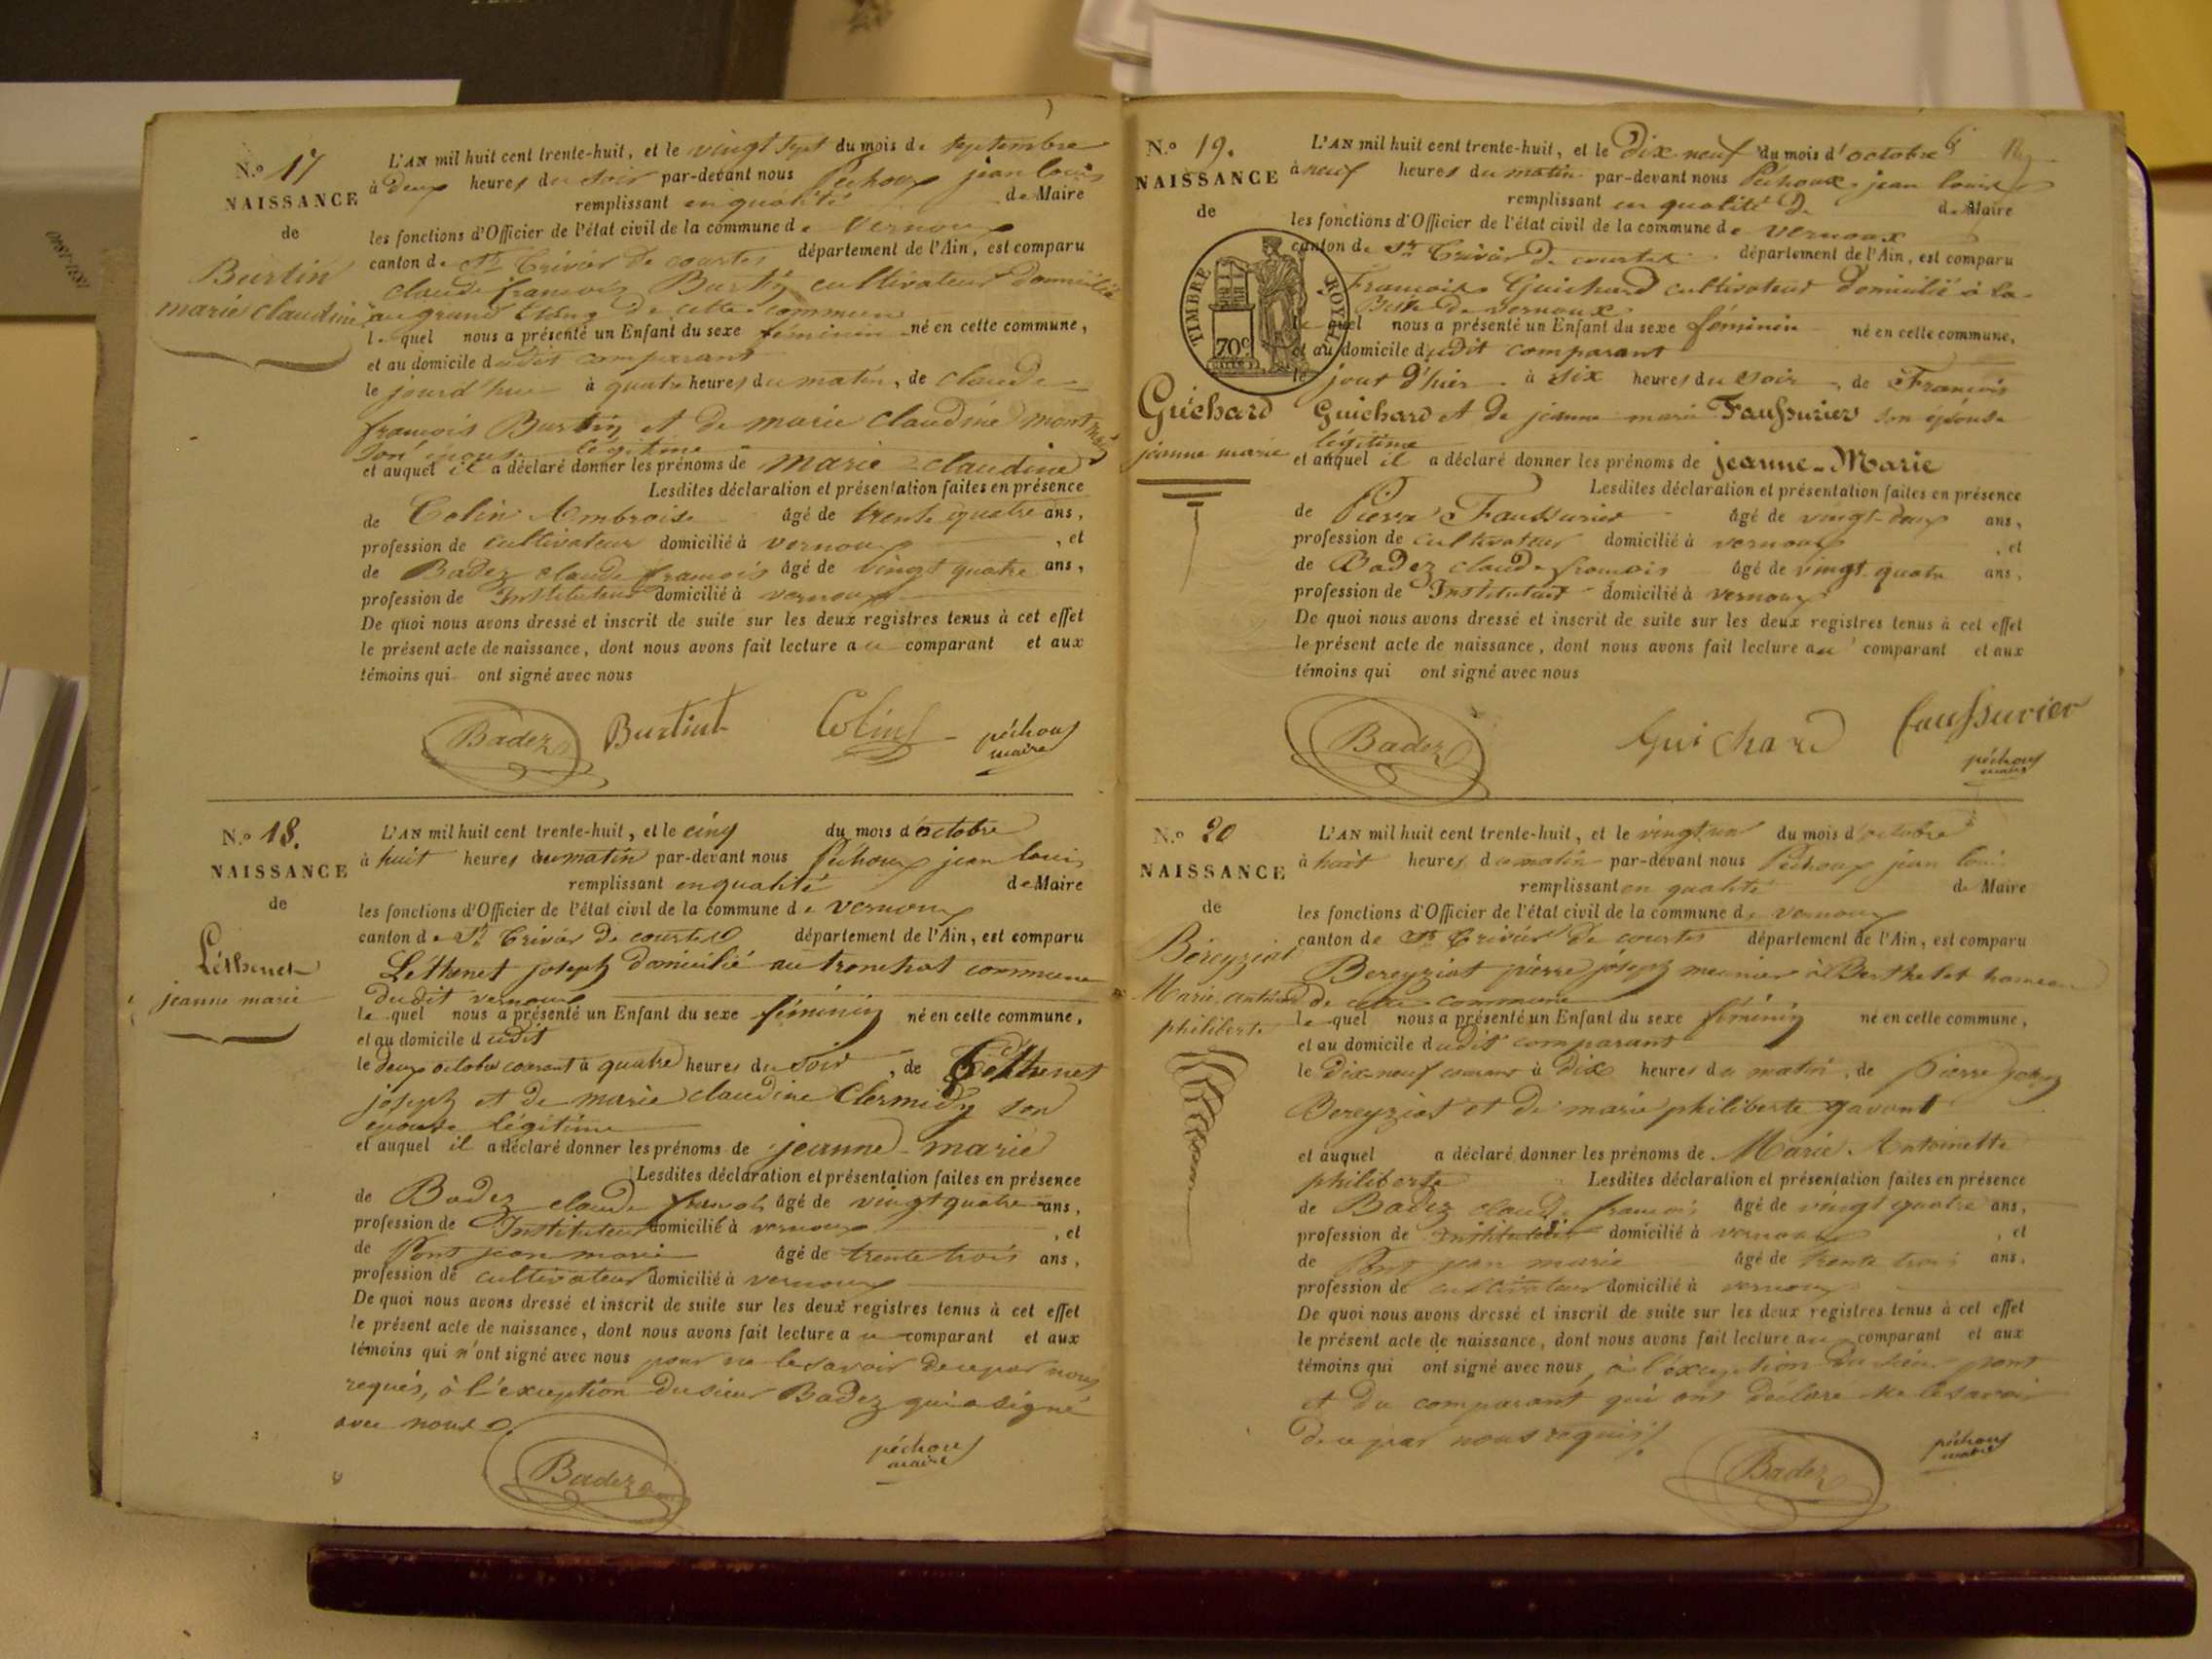 N.º 17
NAISSANCE
de
Burtin
marie claudine
L'AN mil huit cent trente-huit, et le vingt sept du mois de septembre
à Deux heures du soir par-devant nous Péchoux jean louis
remplissant en qualité de Maire
les fonctions d'Officier de l'état civil de la commune de Vernoux
canton de St Trivier de courtes département de l'Ain, est comparu
claude françois Burtin cultivateur domicilié
au grand de cette commune
lequel nous a présenté un Enfant du sexe féminin né en cette commune,
et au domicile dudit comparant
le jourd'hui à quatre heures du matin, de claude
françois Burtin et de marie claudine
son épouse légitime
et auquel il a déclaré donner les prénoms de marie claudine
Lesdites déclaration et présentation faites en présence
de Colin Ambroise âgé de trente quatre ans,
profession de cultivateur domicilié à vernoux, et
de Badez claude françois âgé de vingt quatre ans,
profession de Instituteur domicilié à vernoux
De quoi nous avons dressé et inscrit de suite sur les deux registres tenus à cet effet
le présent acte de naissance, dont nous avons fait lecture au comparant et aux
témoins qui ont signé avec nous
Badez Burtin Colin péchoux
maire
N.º 18.
NAISSANCE
de
Léthenet
jeanne marie
L'AN mil huit cent trente-huit, et le cinq du mois d'octobre
à huit heures du matin par-devant nous Péchoux jean louis
remplissant en qualité de Maire
les fonctions d'Officier de l'état civil de la commune de Vernoux
canton de St Trivier de courtes département de l'Ain, est comparu
Léthenet joseph domicilié au tronchat commune
dudit vernoux
lequel nous a présenté un Enfant du sexe féminin né en cette commune,
et au domicile dudit
le deux octobre courant à quatre heures du soir, de Léthenet
joseph et de marie claudine Clermidy son
épouse légitime
et auquel il a déclaré donner les prénoms de jeanne-marie
Lesdites déclaration et présentation faites en présence
de Badez claude françois âgé de vingt quatre ans,
profession de Instituteur domicilié à vernoux, et
de Pont jean marie âgé de trente trois ans,
profession de cultivateur domicilié à vernoux
De quoi nous avons dressé et inscrit de suite sur les deux registres tenus à cet effet
le présent acte de naissance, dont nous avons fait lecture au comparant et aux
témoins qui n'ont signé avec nous pour ne le savoir de ce par nous
requis, à l'exception du sieur Badez qui a signé
avec nous
Badez péchoux
maire
N.º 19.
NAISSANCE
de
TIMBRE ROYAL
70c
Guichard
jeanne marie
L'AN mil huit cent trente-huit, et le Dix neuf du mois d'octobre
à neuf heures du matin par-devant nous Péchoux jean louis
remplissant en qualité de Maire
les fonctions d'Officier de l'état civil de la commune de Vernoux
canton de St Trivier de courtes département de l'Ain, est comparu
François Guichard cultivateur domicilié à la
de vernoux
lequel nous a présenté un Enfant du sexe féminin né en cette commune,
et au domicile dudit comparant
le jour d'hier à six heures du soir, de François
Guichard et de jeanne marie Faussurier son épouse
légitime
et auquel il a déclaré donner les prénoms de jeanne-Marie
Lesdites déclaration et présentation faites en présence
de Pierre Faussurier âgé de vingt-deux ans,
profession de cultivateur domicilié à vernoux, et
de Badez claude françois âgé de vingt-quatre ans,
profession de Instituteur domicilié à vernoux
De quoi nous avons dressé et inscrit de suite sur les deux registres tenus à cet effet
le présent acte de naissance, dont nous avons fait lecture au comparant et aux
témoins qui ont signé avec nous
Badez Guichard faussurier
péchoux
maire
N.º 20
NAISSANCE
de
Béreyziat
Marie antoinette
philiberte
L'AN mil huit cent trente-huit, et le vingt un du mois d'octobre
à huit heures du matin par-devant nous Péchoux jean louis
remplissant en qualité de Maire
les fonctions d'Officier de l'état civil de la commune de vernoux
canton de St Trivier de courtes département de l'Ain, est comparu
Bereyziat pierre joseph meunier à Berthelet hameau
de cette commune
lequel nous a présenté un Enfant du sexe féminin né en cette commune,
et au domicile dudit comparant
le Dix-neuf courant à dix heures du matin, de pierre joseph
Bereyziat et de marie philiberte gavant
et auquel a déclaré donner les prénoms de Marie Antoinette
philiberte Lesdites déclaration et présentation faites en présence
de Badez claude françois âgé de vingt quatre ans,
profession de instituteur domicilié à vernoux, et
de Pont jean marie âgé de trente trois ans,
profession de cultivateur domicilié à vernoux
De quoi nous avons dressé et inscrit de suite sur les deux registres tenus à cet effet
le présent acte de naissance, dont nous avons fait lecture au comparant et aux
témoins qui ont signé avec nous, à l'exception du sieur pont
et du comparant qui ont déclaré ne le savoir
de ce par nous requis
Badez péchoux
maire